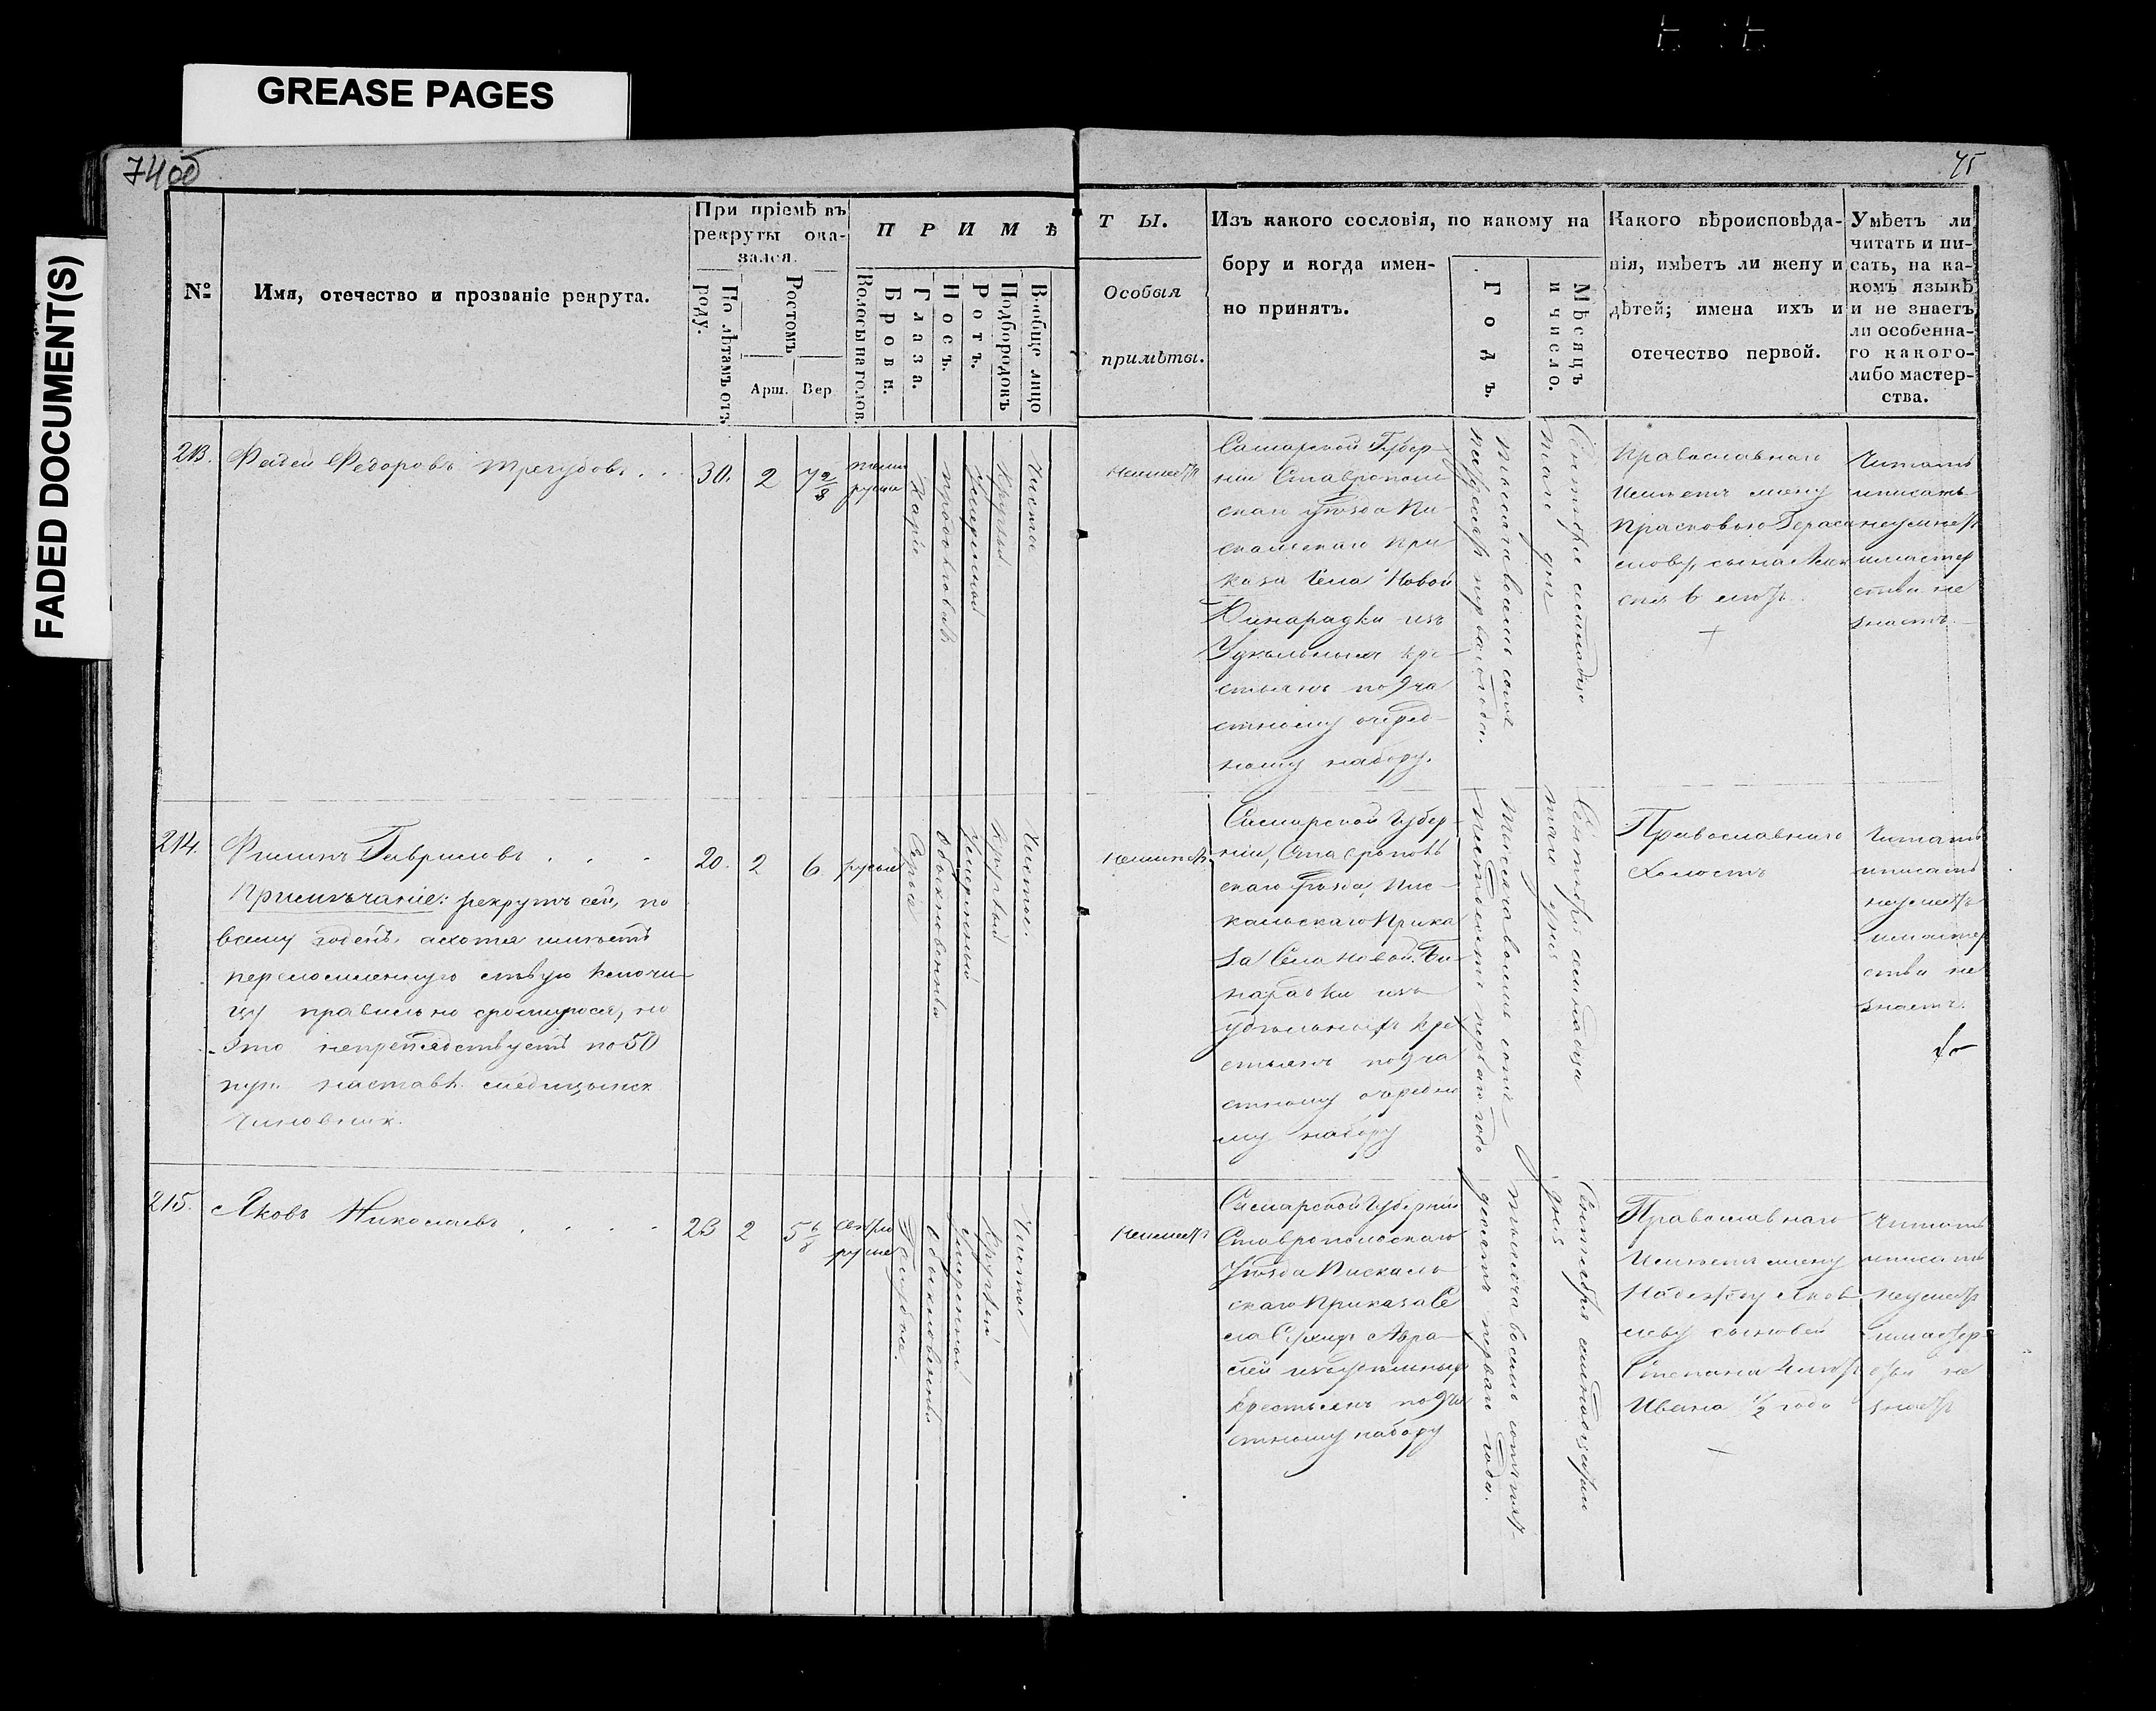 GREASE PAGES
FADED DOCUMENT(S)
74об
75
№
Имя, отечество и прозваніе рекрута.
При пріемѣ въ
рекруты ока-
зался.
По лѣтамъ отъ
роду.
Ростомъ
Арш.
Вер
ПРИМѢ
Волосы на голов.
Брови.
Глаза.
Носъ.
Ротъ.
Подбородокъ
Вообще лицо
ТЫ.
Особыя
примѣты.
Изъ какого сословія, по какому на
бору и когда имен-
но принятъ.
Годъ.
Мѣсяцъ
и число.
Какого вѣроисповѣда-
нія, имѣетъ ли жену и
дѣтей; имена ихъ и
отечество первой.
Умѣетъ ли
читать и пи-
сать, на ка-
комъ языкѣ
и не знаетъ
ли особенна-
го какого-
либо мастер-
ства.
213.
Фадей Федоровъ Трегубовъ
30.
2
7 2/8
темн
русые
Каріе
умеренной
Круглый
Чистое
Неимеетъ
Самарской Губер-
ніи Ставрополь
скаго уѣзда Пи-
скальскаго При
каза Села Новой
Бинарадки изъ
Удѣльныхъ кре
стьянъ по 9 ча
стному очеред-
ному набору.
тысяча восемь сотъ
пятьдесятъ перваго года.
Сентября семнадца
таго дня
Православнаго
Имѣетъ жену
Прасковью Гераси
мову, сына Алек
сея 6 летъ.
Читать
иписать
неумеетъ
имастер
ства не
знаетъ.
214.
Филипъ Гавриловъ
Примѣчаніе: рекрутъ сей, по
всему годенъ, ахотя имѣетъ
переломленную лѣвую ключи-
цу правильно сросшуюся, но
это непрепядствуетъ по 50
пун. наставл. медицынск
Чиновник.
20.
2
6
русые
Серые
Обыкновенный
Умеренный
круглый
Чистое.
Неимеетъ
Самарской Губер-
ніи, Ставрополь
скаго уѣзда, Пис-
кальскаго Прика
за Села Новой Би-
нарадки изъ
удѣльныхъ кре
стьянъ по 9 ча
стному очередно
му набору
тысяча восемь сотъ
пятьдесятъ перваго года
Сентября семнадца
таго дня
Православнаго
Холостъ
Читать
иписать
неумеетъ
имастер
ства не
знаетъ.
215.
Яковъ Николаевъ
23
2
5 6/8
светло
русые
Голубые.
Обыкновенный
Умеренный
Круглый
Чистое
Неимеетъ
Самарской Губерніи
Ставропольскаго
Уѣзда Пискаль-
скаго Приказа Се
ла
изъ удѣльныхъ
крестьянъ по 9 ча
стному набору
тысяча восемь сотъ пят-
десятъ перваго года.
Сентября семнадцатаго
дня
Православнаго
Имѣетъ жену
Надежду Яков
леву сыновей
Степана 4 летъ
Ивана 1/2 года
Читать
иписать
неумеетъ
имастер-
ства не
знаетъ